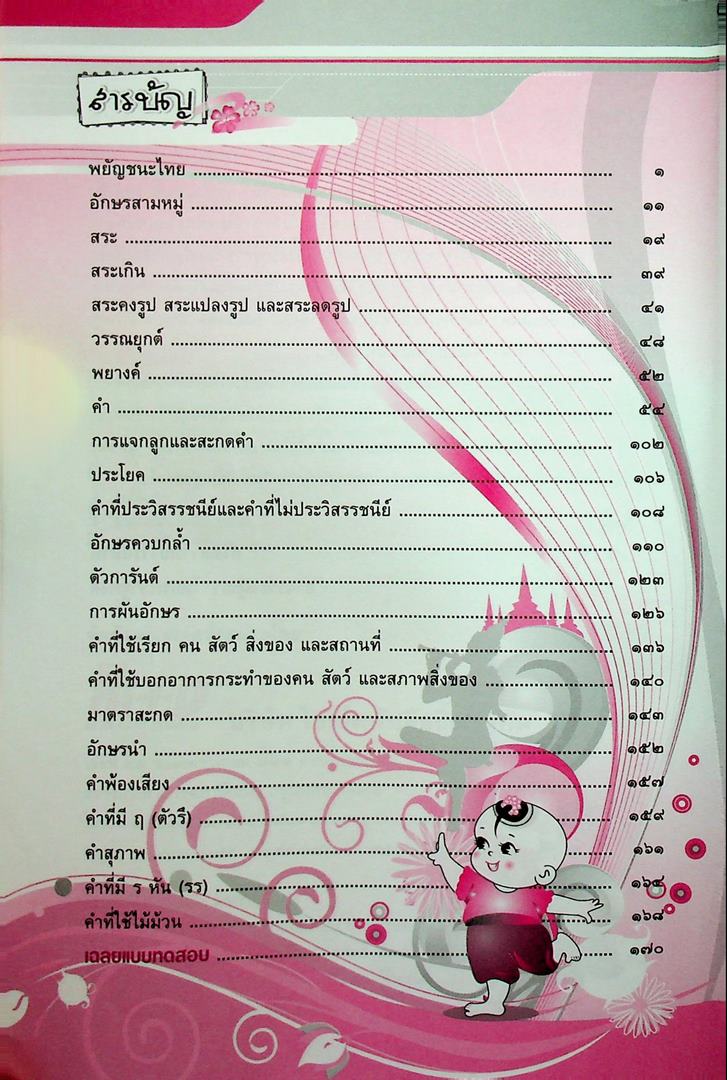 สารบัญ
พยัญชนะไทย ๑
อักษรสามหมู่ ๑๑
สระ ๑๙
สระเกิน ๓๙
สระคงรูป สระแปลงรูป และสระลดรูป ๔๑
วรรณยุกต์ ๔๘
พยางค์ ๕๒
คำ ๕๔
การแจกลูกและสะกดคำ ๑๐๒
ประโยค ๑๐๖
คำที่ประวิสรรชนีย์และคำที่ไม่ประวิสรรชนีย์ ๑๐๘
อักษรควบกล้ำ ๑๑๐
ตัวการันต์ ๑๒๓
การผันอักษร ๑๒๖
คำที่ใช้เรียก คน สัตว์ สิ่งของ และสถานที่ ๑๓๖
คำที่ใช้บอกอาการกระทำของคน สัตว์ และสภาพสิ่งของ ๑๔๐
มาตราสะกด ๑๔๓
อักษรนำ ๑๕๒
คำพ้องเสียง ๑๕๗
คำที่มี ฤ (ตัวรึ) ๑๕๙
คำสุภาพ ๑๖๑
คำที่มี ร หัน (รร) ๑๖๔
คำที่ใช้ไม้ม้วน ๑๖๘
เฉลยแบบทดสอบ ๑๗๐